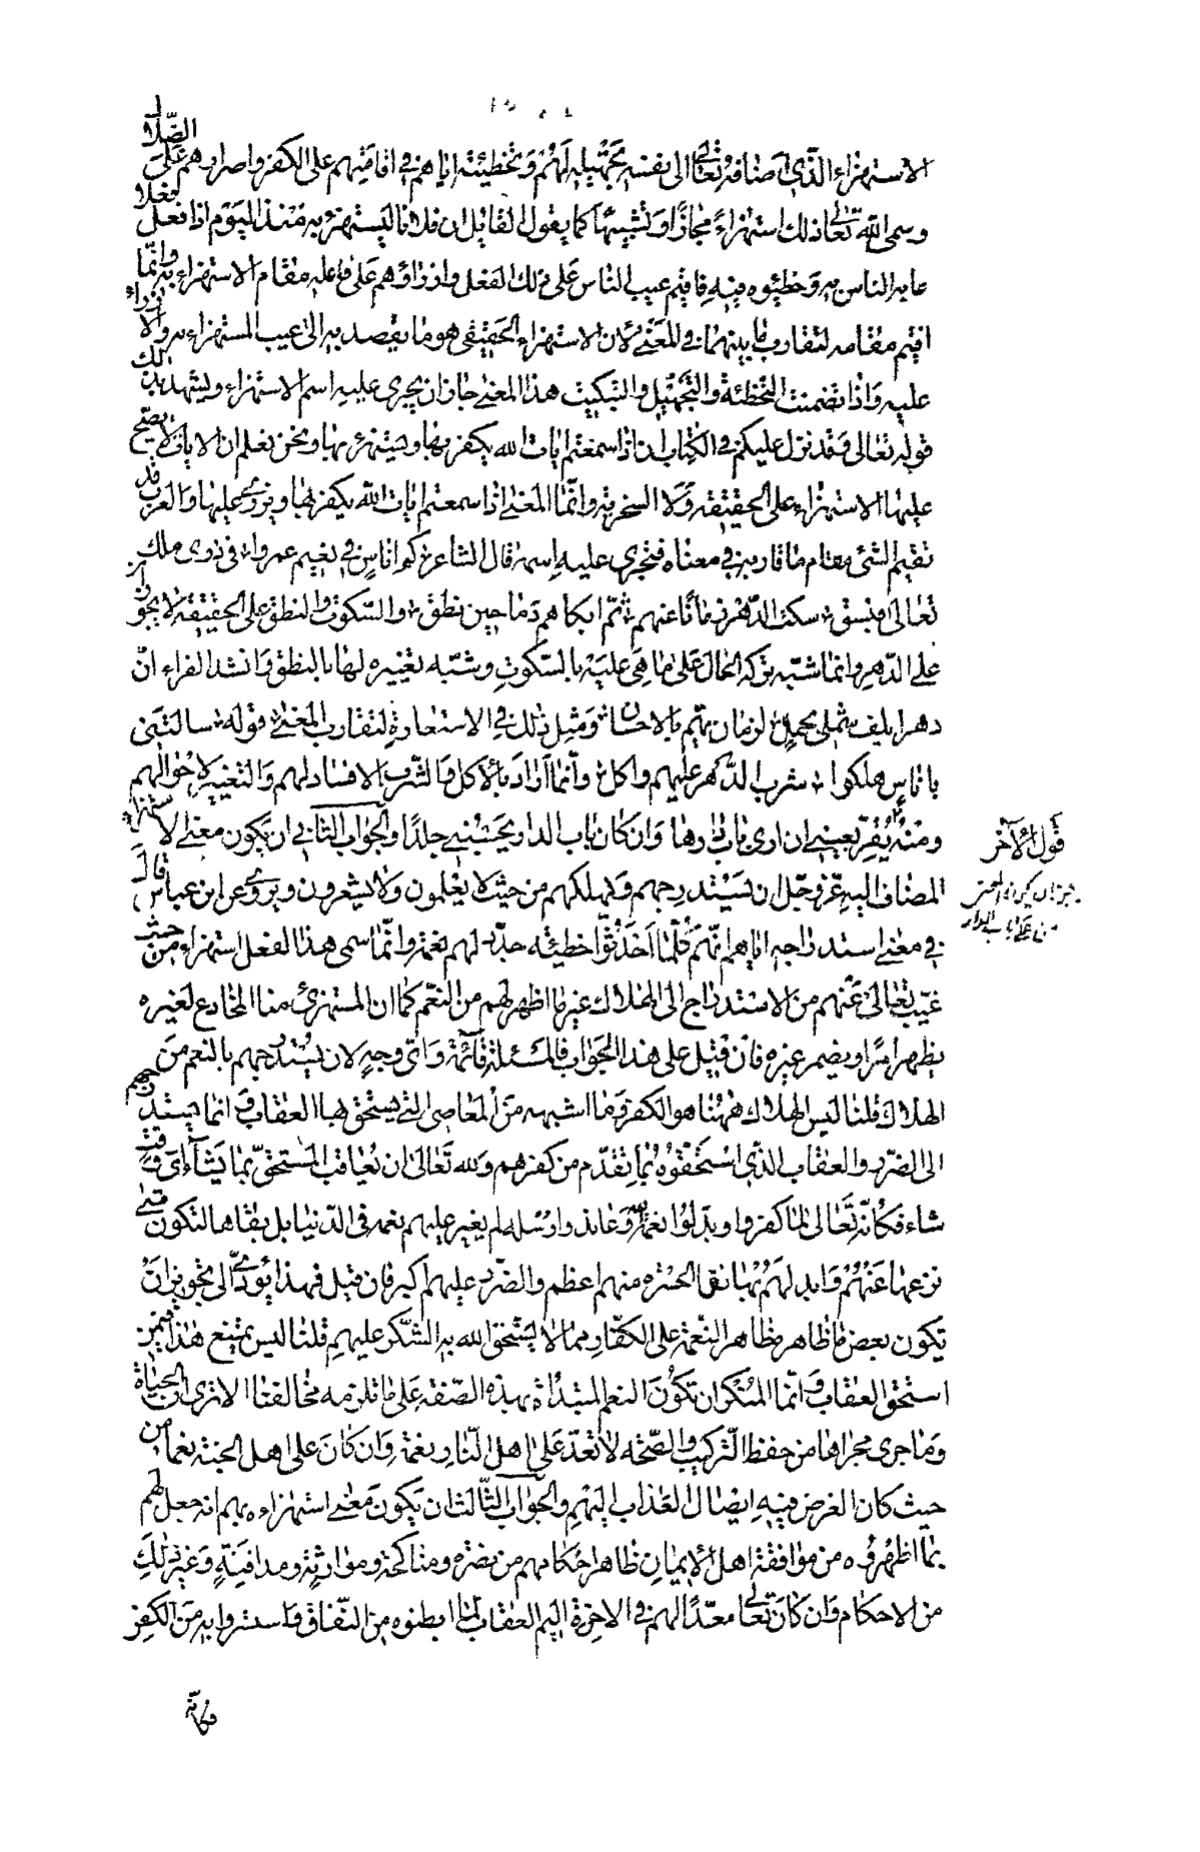 الاستهزاء الذي اضافه تعالى الى نفسه تجهيله لهم وتخطئته اياهم في اقامتهم على الكفر واصرارهم على الضلال
وسمى الله تعالى ذلك استهزاء مجازا وتشبيها كما يقول القايل ان فلانا ليستهزء به منذ اليوم اذا فعل فعلا
عابه الناس به وخطئوه فيه فاقيم عيب الناس على ذلك الفعل وازراؤهم على فاعله مقام الاستهزاء به وانما
اقيم مقامه لتقارب ما بينهما في المعنى لان الاستهزاء الحقيقي هو ما يقصد به الى عيب المستهزاء به والازراء
عليه واذا تضمنت التخطئة والتجهيل والتبكيت هذا المعنى جاز ان يجرى عليه اسم الاستهزاء ويشهد بذلك
قوله تعالى وقد نزل عليكم في الكتاب ان اذا سمعتم ايات الله يكفر بها ويستهزء بها ونحن نعلم ان الايات لا يصح
عليها الاستهزاء على الحقيقة ولا السخرية وانما المعنى اذا سمعتم ايات الله يكفر بها ويزرى عليها والعرب قد
تقيم الشئ مقام ما قاربه في معناه فتجرى عليه اسمه قال الشاعر كم اناس في نعيم عمروا في ذرى ملك
تعالى فبسق سكت الدهر زمانا عنهم ثم ابكاهم دما حين نطق والسكوت والنطق على الحقيقة لا يجوزان
على الدهر وانما شبه تركه الحال على ما هى عليه بالسكوت وشبه تغييره لها بالنطق وانشد الفراء ان
دهرا يلف شملى بجمل لزمان يهم بالاحسان ومثل ذلك في الاستعارة لتقارب المعنى قوله سالتنى
باناس هلكوا شرب الدهر عليهم واكل وانما اراد بالاكل والشرب الافساد لهم والتغيير لاحوالهم
ومنه يقر بعينى ان ارى باب دارها وان كان باب الدار يحسبنى جلدا والجواب الثاني ان يكون معنى الاستهزاء
المضاف اليه عز وجل ان يستدرجهم ويهلكهم من حيث لا يعلمون ولا يشعرون ويروى عن ابن عباس قال
في معنى استدراجه اياهم انهم كلما احدثوا خطيئة جدد لهم نعمة وانما سمى هذا الفعل استهزاء من حيث
غيب تعالى عنهم من الاستدراج الى الهلاك غير ما اظهر لهم من النعم كما ان المستهزئ منا المخادع لغيره
يظهر امرا ويضمر غيره فان قيل على هذا الجواب فالمسئلة قائمة واى وجه لان يستدرجهم بالنعم من
الهلاك قلنا ليس الهلاك ههنا هو الكفر وما اشبهه من المعاصى التى يستحق بها العقاب وانما يستدرجهم
الى الضرر والعقاب الذي استحقوه بما تقدم من كفرهم ولله تعالى ان يعاقب المستحق بما يشاء اى وقت
شاء فكانه تعالى لما كفروا وبدلوا نعمة الله وعاندوا رسله لم يغير عليهم نعمه في الدنيا بل بقاها لتكون متى
نزعها عنهم وابدلهم بها نقما الحسرة منهم اعظم والضرر عليهم اكبر فان قيل فهذا يؤدى الى تجويز ان
تكون بعض ما ظاهره ظاهر النعمة على الكفار مما لا يستحق الله به الشكر عليهم قلنا ليس يمتنع هذا فيمن
استحق العقاب وانما المنكر ان تكون النعم المبتداة بهذه الصفة على ما تلزمه مخالفنا الا ترى ان الحياة
وما جرى مجراها من حفظ التركيب والصحة لا تعد على اهل النار نعمة وان كان على اهل الجنة نعما من
حيث كان الغرض فيه ايصال العذاب اليهم والجواب الثالث ان يكون معنى استهزاءه بهم انه جعل لهم
بما اظهروه من موافقة اهل الايمان ظاهر احكامهم من نصرة ومناكحة وموارثة ومدافنة وغير ذلك
من الاحكام وان كان تعالى معدا لهم في الاخرة اليم العقاب لما ابطنوه من النفاق واستسروا به من الكفر
فكانه
قول الآخر